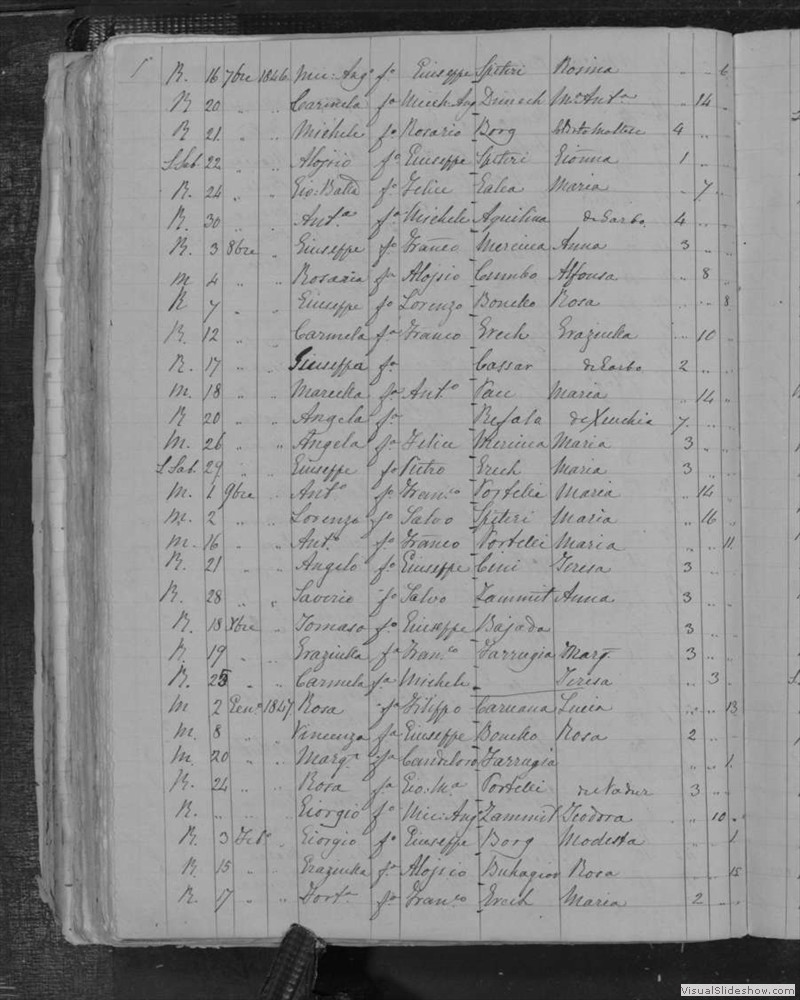 R. 16 7bre 1846 Mic: Ang.o fo Giuseppe Spiteri Rosina .. .. 6
R 20 .. .. Carmela fa Mich: Ang Dimech Ma Anta .. 14 ..
R 21 .. .. Michele fo Rosario Borg 4 .. ..
22 .. .. Alojsio fo Giuseppe Spiteri 1 .. ..
R. 24 .. .. Gio: Batta fo Felice Galea Maria .. 7 ..
R. 30 .. .. Ant.a fa Michele Aquilina 4 .. ..
R. 3 8bre .. Giuseppe fo Franco Mercieca Anna 3 .. ..
M 4 .. .. Rosaria fa Alojsio Cumbo Alfonsa .. 8 ..
R 7 .. .. Giuseppe fo Lorenzo Bonello Rosa .. .. 8
R. 12 .. .. Carmela fa Franco Grech Graziulla .. 10 ..
R. 17 .. .. Giuseppa fa Cassar 2 .. ..
M. 18 .. .. Mariella fa Ant.o Maria .. 14 ..
R 20 .. .. Angela fa Refalo de Xeuchia 7 .. ..
M. 26 .. .. Angela fa Felice Mercieca Maria 3 .. ..
29 .. .. Giuseppe fo Pietro Grech Maria 3 .. ..
M. 1 9bre .. Ant.o fo Fran.co Portelli Maria .. 14 ..
M. 2 .. .. Lorenzo fo Salvo Spiteri Maria .. 16 ..
M. 16 .. .. Ant.o fo Franco Portelli Maria .. .. 11
R. 21 .. .. Angelo fo Giuseppe Cini Teresa 3 .. ..
R. 28 .. .. Saverio fo Salvo Zammit Anna 3 .. ..
R. 18 Xbre .. Tomaso fo Giuseppe Bajada 3 .. ..
R. 19 .. .. Graziulla fa Fran.co Farrugia Marg. 3 .. ..
R. 25 .. .. Carmela fa Michele Teresa .. 3 ..
M 2 Gen.o 1847 Rosa fa Filippo Caruana Lucia .. .. 13
M. 8 .. .. Vincenza fa Giuseppe Bonello Rosa 2 .. ..
M. 20 .. .. Marg.a fa Candeloro Farrugia .. .. 1
R. 24 .. .. Rosa fa Gio: Ma Portelli del Nadur 3 .. ..
R. .. .. .. Giorgio fo Mic: Ang Zammit Teodora .. 10 ..
R. 3 Feb.o .. Giorgio fo Giuseppe Borg Modesta .. .. 1
R. 15 .. .. Graziulla fa Alojsio Buhagiar Rosa .. .. 15
R. 17 .. .. Fort.a fa Fran.co Grech Maria 2 .. ..
VisualSlideshow.com